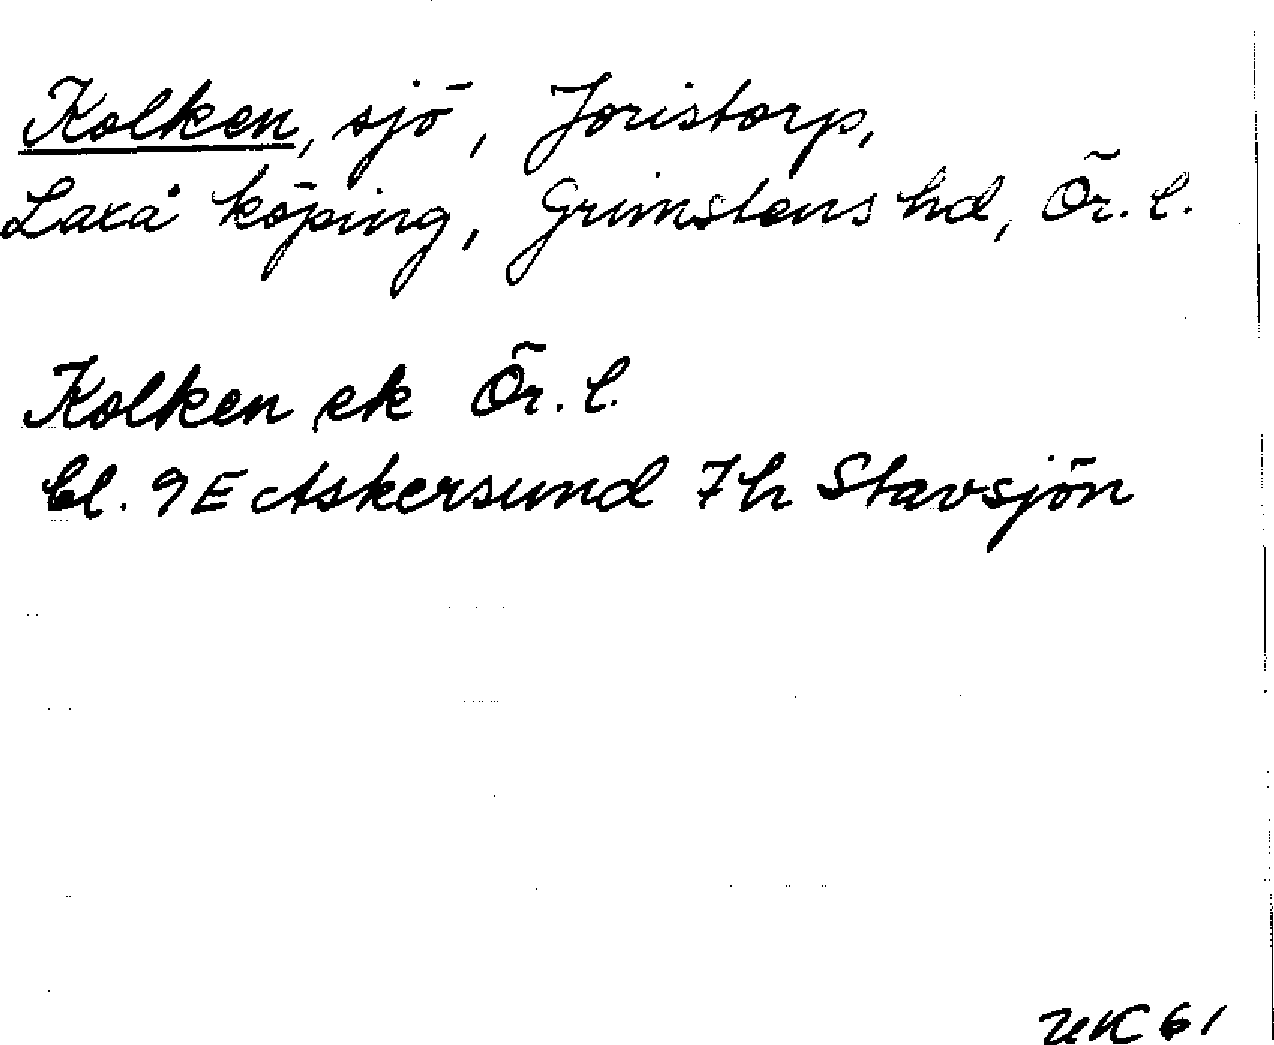 Kolken, sjö, Joristorp,
Laxå köping, Grimstens hd, Ör. l.
Kolken ek Ör. l.
bl. 9E Askersund 7h Stavsjön
UK 61